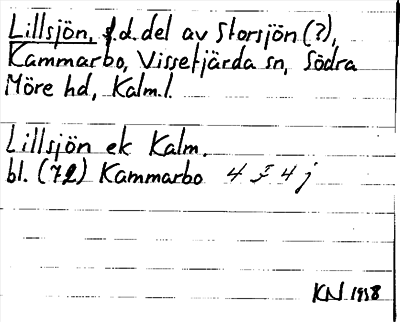 Lillsjön, f.d. del av Storsjön (?),
Kammarbo, Vissefjärda sn, Södra
Möre hd, Kalm.l.
Lillsjön ek Kalm.
bl. (72) Kammarbo 4 F 4 j
KN 1958